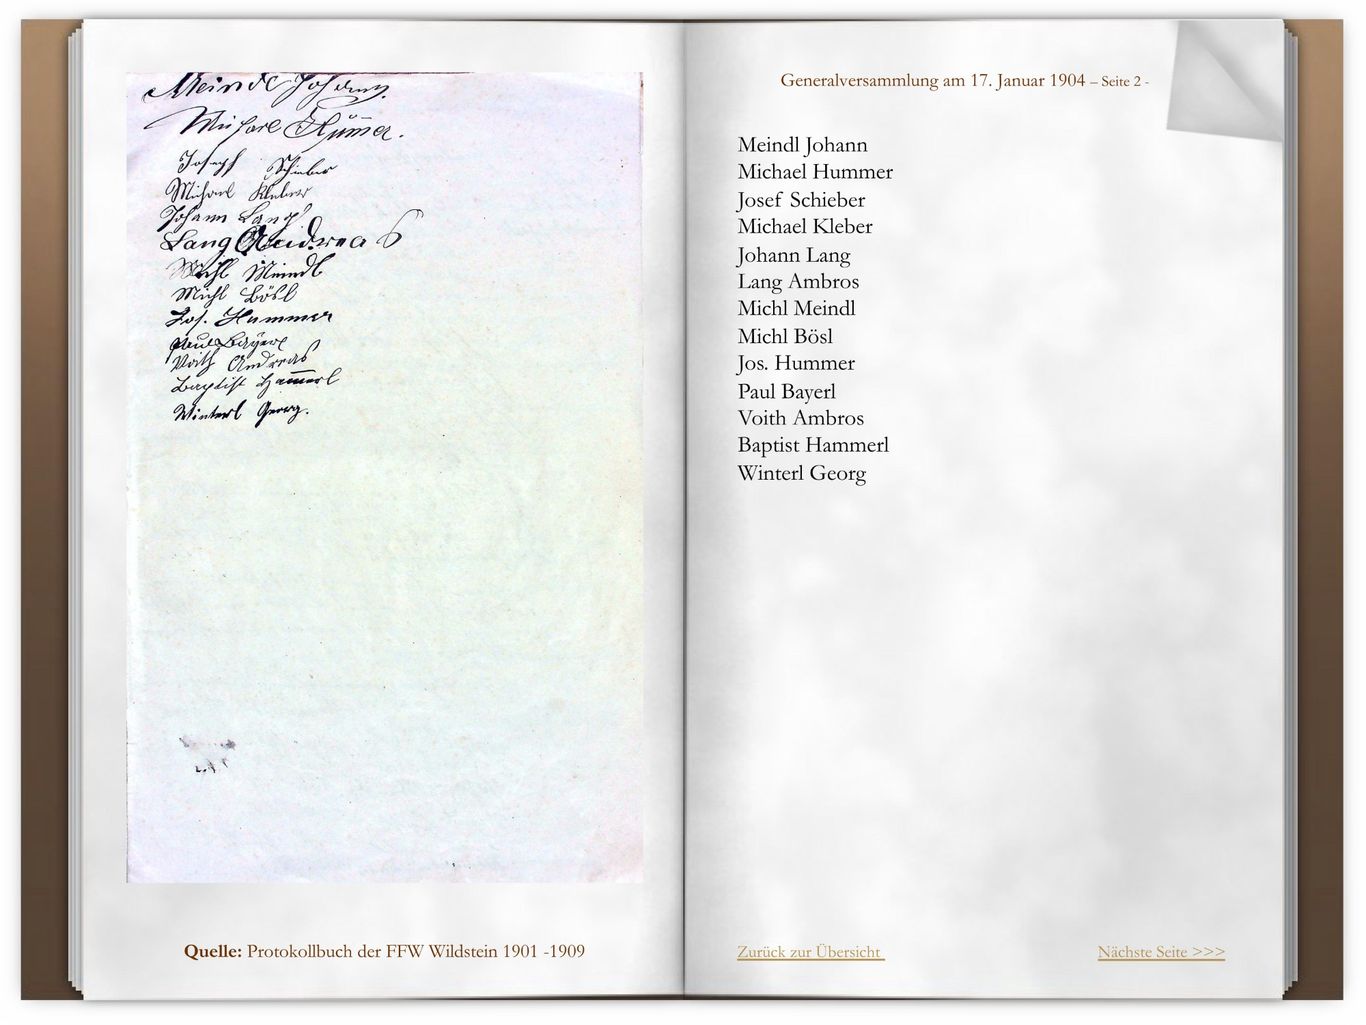 Meindl Johann
Michael Hummer.
Joseph Schieber
Michael Kleber
Johann Lang
Lang Andreas
Michl Meindl
Michl Bösl
Jos. Hummer
Paul Bayerl
Voith Andreas
Baptist Hammerl
Winterl Georg.
Quelle: Protokollbuch der FFW Wildstein 1901 -1909
Generalversammlung am 17. Januar 1904 – Seite 2 -
Meindl Johann
Michael Hummer
Josef Schieber
Michael Kleber
Johann Lang
Lang Ambros
Michl Meindl
Michl Bösl
Jos. Hummer
Paul Bayerl
Voith Ambros
Baptist Hammerl
Winterl Georg
Zurück zur Übersicht
Nächste Seite >>>